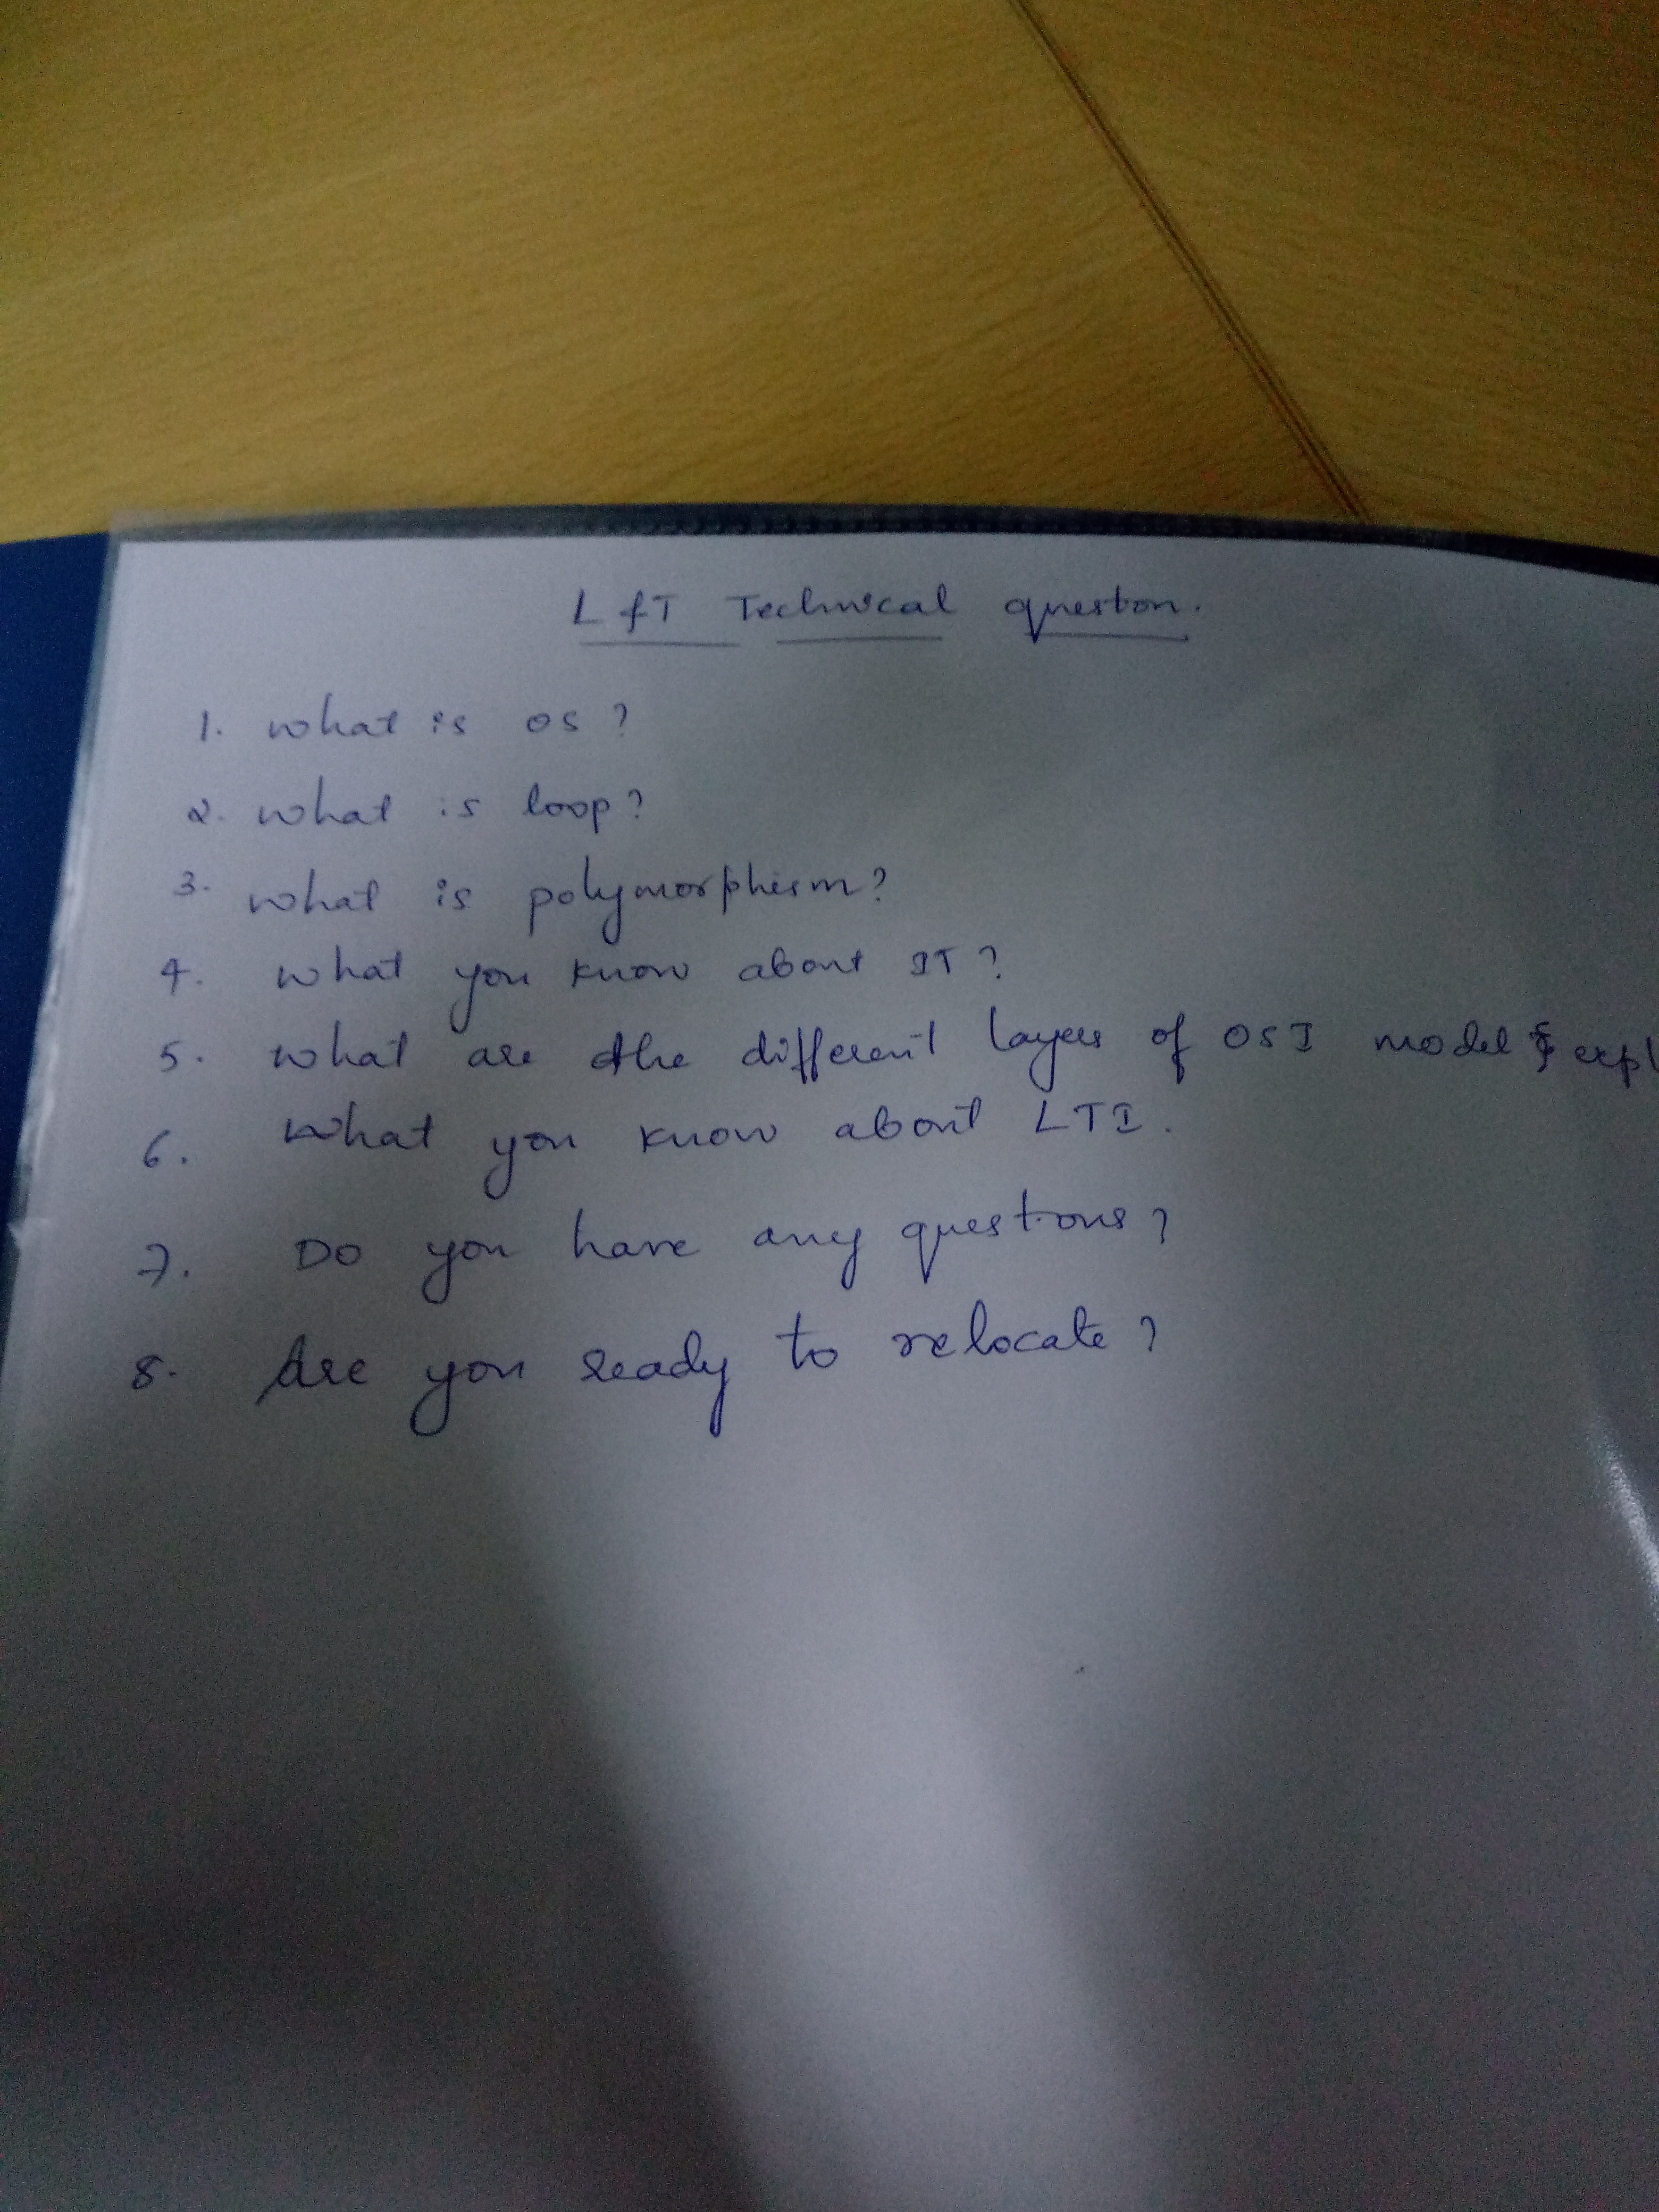 L&T Technical question.
1. what is OS?
2. what is loop?
3. what is polymorphism?
4. what you know about IT?
5. what are the different layers of OSI model & expl
6. what you know about LTI.
7. Do you have any questions?
8. Are you ready to relocate?